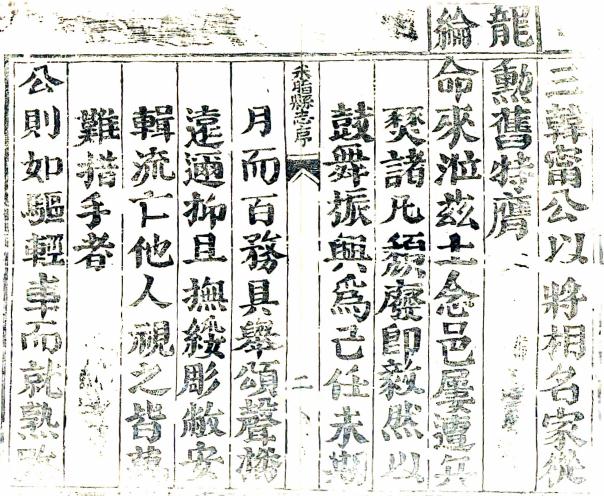 三韓甯公以將相名家從
龍勲舊特膺
綸命來涖兹土念邑屢遭兵
燹諸凡頽廢即毅然以
鼓舞振興爲己任未期
米脂縣志序 二
月而百務具舉頌聲
遠邇抑且撫綏彫敝安
輯流亡他人視之皆萬
難措手者
公則如驅輕車而就熟路